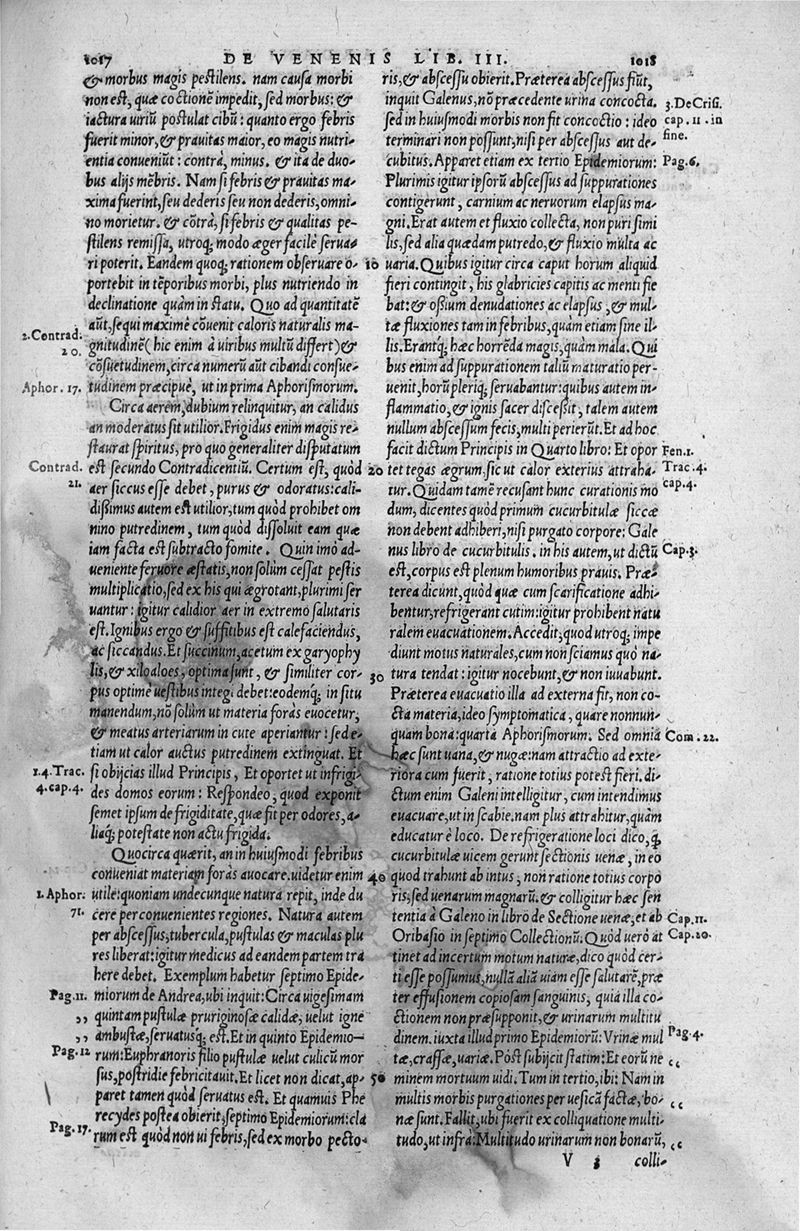 1017 DE VENENIS LIB. III. 1018
& morbus magis pestilens. nam causa morbi
non est, quæ coctionē impedit, sed morbus: &
iactura uiriū postulat cibū: quanto ergo febris
fuerit minor, & prauitas maior, eo magis nutri-
entia conueniūt: contrà, minus. & ita de duo-
bus alijs mēbris. Nam si febris & prauitas ma-
xima fuerint, seu dederis seu non dederis, omni-
no morietur. & cōtrà, si febris & qualitas pe-
stilens remissa, utroq; modo æger facilè serua-
ri poterit. Eandem quoq; rationem obseruare o-
portebit in tēporibus morbi, plus nutriendo in
declinatione quàm in statu. Quo ad quantitatē
aūt, sequi maximè cōuenit caloris naturalis ma-
2. Contrad. 20.
gnitudinē (hic enim à uiribus multū differt) &
cōsuetudinem, circa numerū aūt cibandi consue-
Aphor. 17.
tudinem præcipuè, ut in prima Aphorismorum.
Circa aerem, dubium relinquitur, an calidus
an moderatus sit utilior. Frigidus enim magis re-
staurat spiritus, pro quo generaliter disputatum
Contrad. 21.
est secundo Contradicentiū. Certum est, quòd
aer siccus esse debet, purus & odoratus: cali-
dissimus autem est utilior, tum quòd prohibet om
nino putredinem, tum quòd dissoluit eam quæ
iam facta est subtracto fomite. Quin imò ad-
ueniente feruore æstatis, non solùm cessat pestis
multiplicatio, sed ex his qui ægrotant, plurimi ser
uantur: igitur calidior aer in extremo salutaris
est. Ignibus ergo & suffitibus est calefaciendus,
ac siccandus. Et succinum, acetum ex garyophy
lis, & xiloaloes, optima sunt, & similiter cor-
pus optimè uestibus integi debet: eodemq; in situ
manendum, nō solùm ut materia foràs euocetur,
& meatus arteriarum in cute aperiantur: sed e-
tiam ut calor auctus putredinem extinguat. Et
1.4. Trac. 4. cap. 4.
si obijcias illud Principis, Et oportet ut infrigi-
des domos eorum: Respondeo, quod exponit
semet ipsum de frigiditate, quæ fit per odores, a-
liaq; potestate non actu frigida.
Quocirca quærit, an in huiusmodi febribus
conueniat materiam foràs auocare. uidetur enim
1. Aphor. 71.
utile: quoniam undecunque natura repit, inde du
cere per conuenientes regiones. Natura autem
per abscessus, tubercula, pustulas & maculas plu
res liberat: igitur medicus ad eandem partem tra
here debet. Exemplum habetur septimo Epide-
Pag. 11.
miorum de Andrea, ubi inquit: Circa uigesimam
,, quintam pustulæ pruriginosæ calidæ, uelut igne
,, ambustæ, seruatusq; est. Et in quinto Epidemio-
Pag. 12
rum: Euphranoris filio pustulæ uelut culicū mor
sus, postridie febricitauit. Et licet non dicat, ap-
paret tamen quòd seruatus est. Et quamuis Phe
recydes postea obierit, septimo Epidemiorum: cla
Pag. 17.
rum est quòd non ui febris, sed ex morbo pecto-
ris, & abscessu obierit. Præterea abscessus fiūt,
inquit Galenus, nō præcedente urina concocta.
3. De Crisi. cap. 11. in fine.
sed in huiusmodi morbis non fit concoctio: ideo
terminari non possunt, nisi per abscessus aut de-
cubitus. Apparet etiam ex tertio Epidemiorum:
Pag. 6.
Plurimis igitur ipsorū abscessus ad suppurationes
contigerunt, carnium ac neruorum elapsus ma-
gni. Erat autem et fluxio collecta, non puri simi
lis, sed alia quædam putredo, & fluxio multa ac
10 uaria. Quibus igitur circa caput horum aliquid
fieri contingit, his glabricies capitis ac menti fie
bat: & ossium denudationes ac elapsus, & mul-
tæ fluxiones tam in febribus, quàm etiam sine il-
lis. Erantq; hæc horrēda magis, quàm mala. Qui
bus enim ad suppurationem taliū maturatio per-
uenit, horū pleriq; seruabantur: quibus autem in-
flammatio, & ignis sacer discessit, talem autem
nullum abscessum fecis, multi perierūt. Et ad hoc
facit dictum Principis in Quarto libro: Et opor
Fen. 1. Trac. 4. cap. 4.
20 tet tegas ægrum, sic ut calor exterius attraha-
tur. Quidam tamē recusant hunc curationis mo
dum, dicentes quòd primum cucurbitulæ siccæ
non debent adhiberi, nisi purgato corpore: Gale
nus libro de cucurbitulis. in his autem, ut dictū
Cap. 3.
est, corpus est plenum humoribus prauis. Præ-
terea dicunt, quòd quæ cum scarificatione adhi-
bentur, refrigerant cutim: igitur prohibent natu
ralem euacuationem. Accedit, quod utroq; impe
diunt motus naturales, cum non sciamus quò na-
30 tura tendat: igitur nocebunt, & non iuuabunt.
Præterea euacuatio illa ad externa fit, non co-
cta materia, ideo symptomatica, quare nonnun-
quam bona: quarta Aphorismorum. Sed omnia
Com. 22.
hæc sunt uana, & nugæ: nam attractio ad exte-
riora cum fuerit, ratione totius potest fieri. di-
ctum enim Galeni intelligitur, cum intendimus
euacuare, ut in scabie. nam plus attrahitur, quàm
educatur è loco. De refrigeratione loci dico, q̨
cucurbitulæ uicem gerunt sectionis uenæ, in eo
40 quod trahunt ab intus, non ratione totius corpo
ris, sed uenarum magnarū. & colligitur hæc sen
tentia à Galeno in libro de Sectione uenæ, et ab
Cap. 11.
Oribasio in septimo Collectionū. Quòd uerò at
Cap. 20.
tinet ad incertum motum naturæ, dico quòd cer-
ti esse possumus, nullā aliā uiam esse salutarē, præ
ter effusionem copiosam sanguinis, quia illa co-
ctionem non præsupponit, & urinarum multitu
dinem. iuxta illud primo Epidemiorū: Vrinæ mul
Pag. 4.
tæ, crassæ, uariæ. Pòst subijcit statim: Et eorū ne ,,
50 minem mortuum uidi. Tum in tertio, ibi: Nam in
multis morbis purgationes per uesicā factæ, bo- ,,
næ sunt. Fallit, ubi fuerit ex colliquatione multi-
tudo, ut infrà: Multitudo urinarum non bonarū, ,,
V 3 colli-